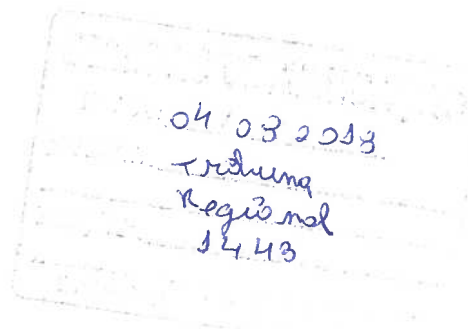 04 03 2013
Tribuna
Regional
1443